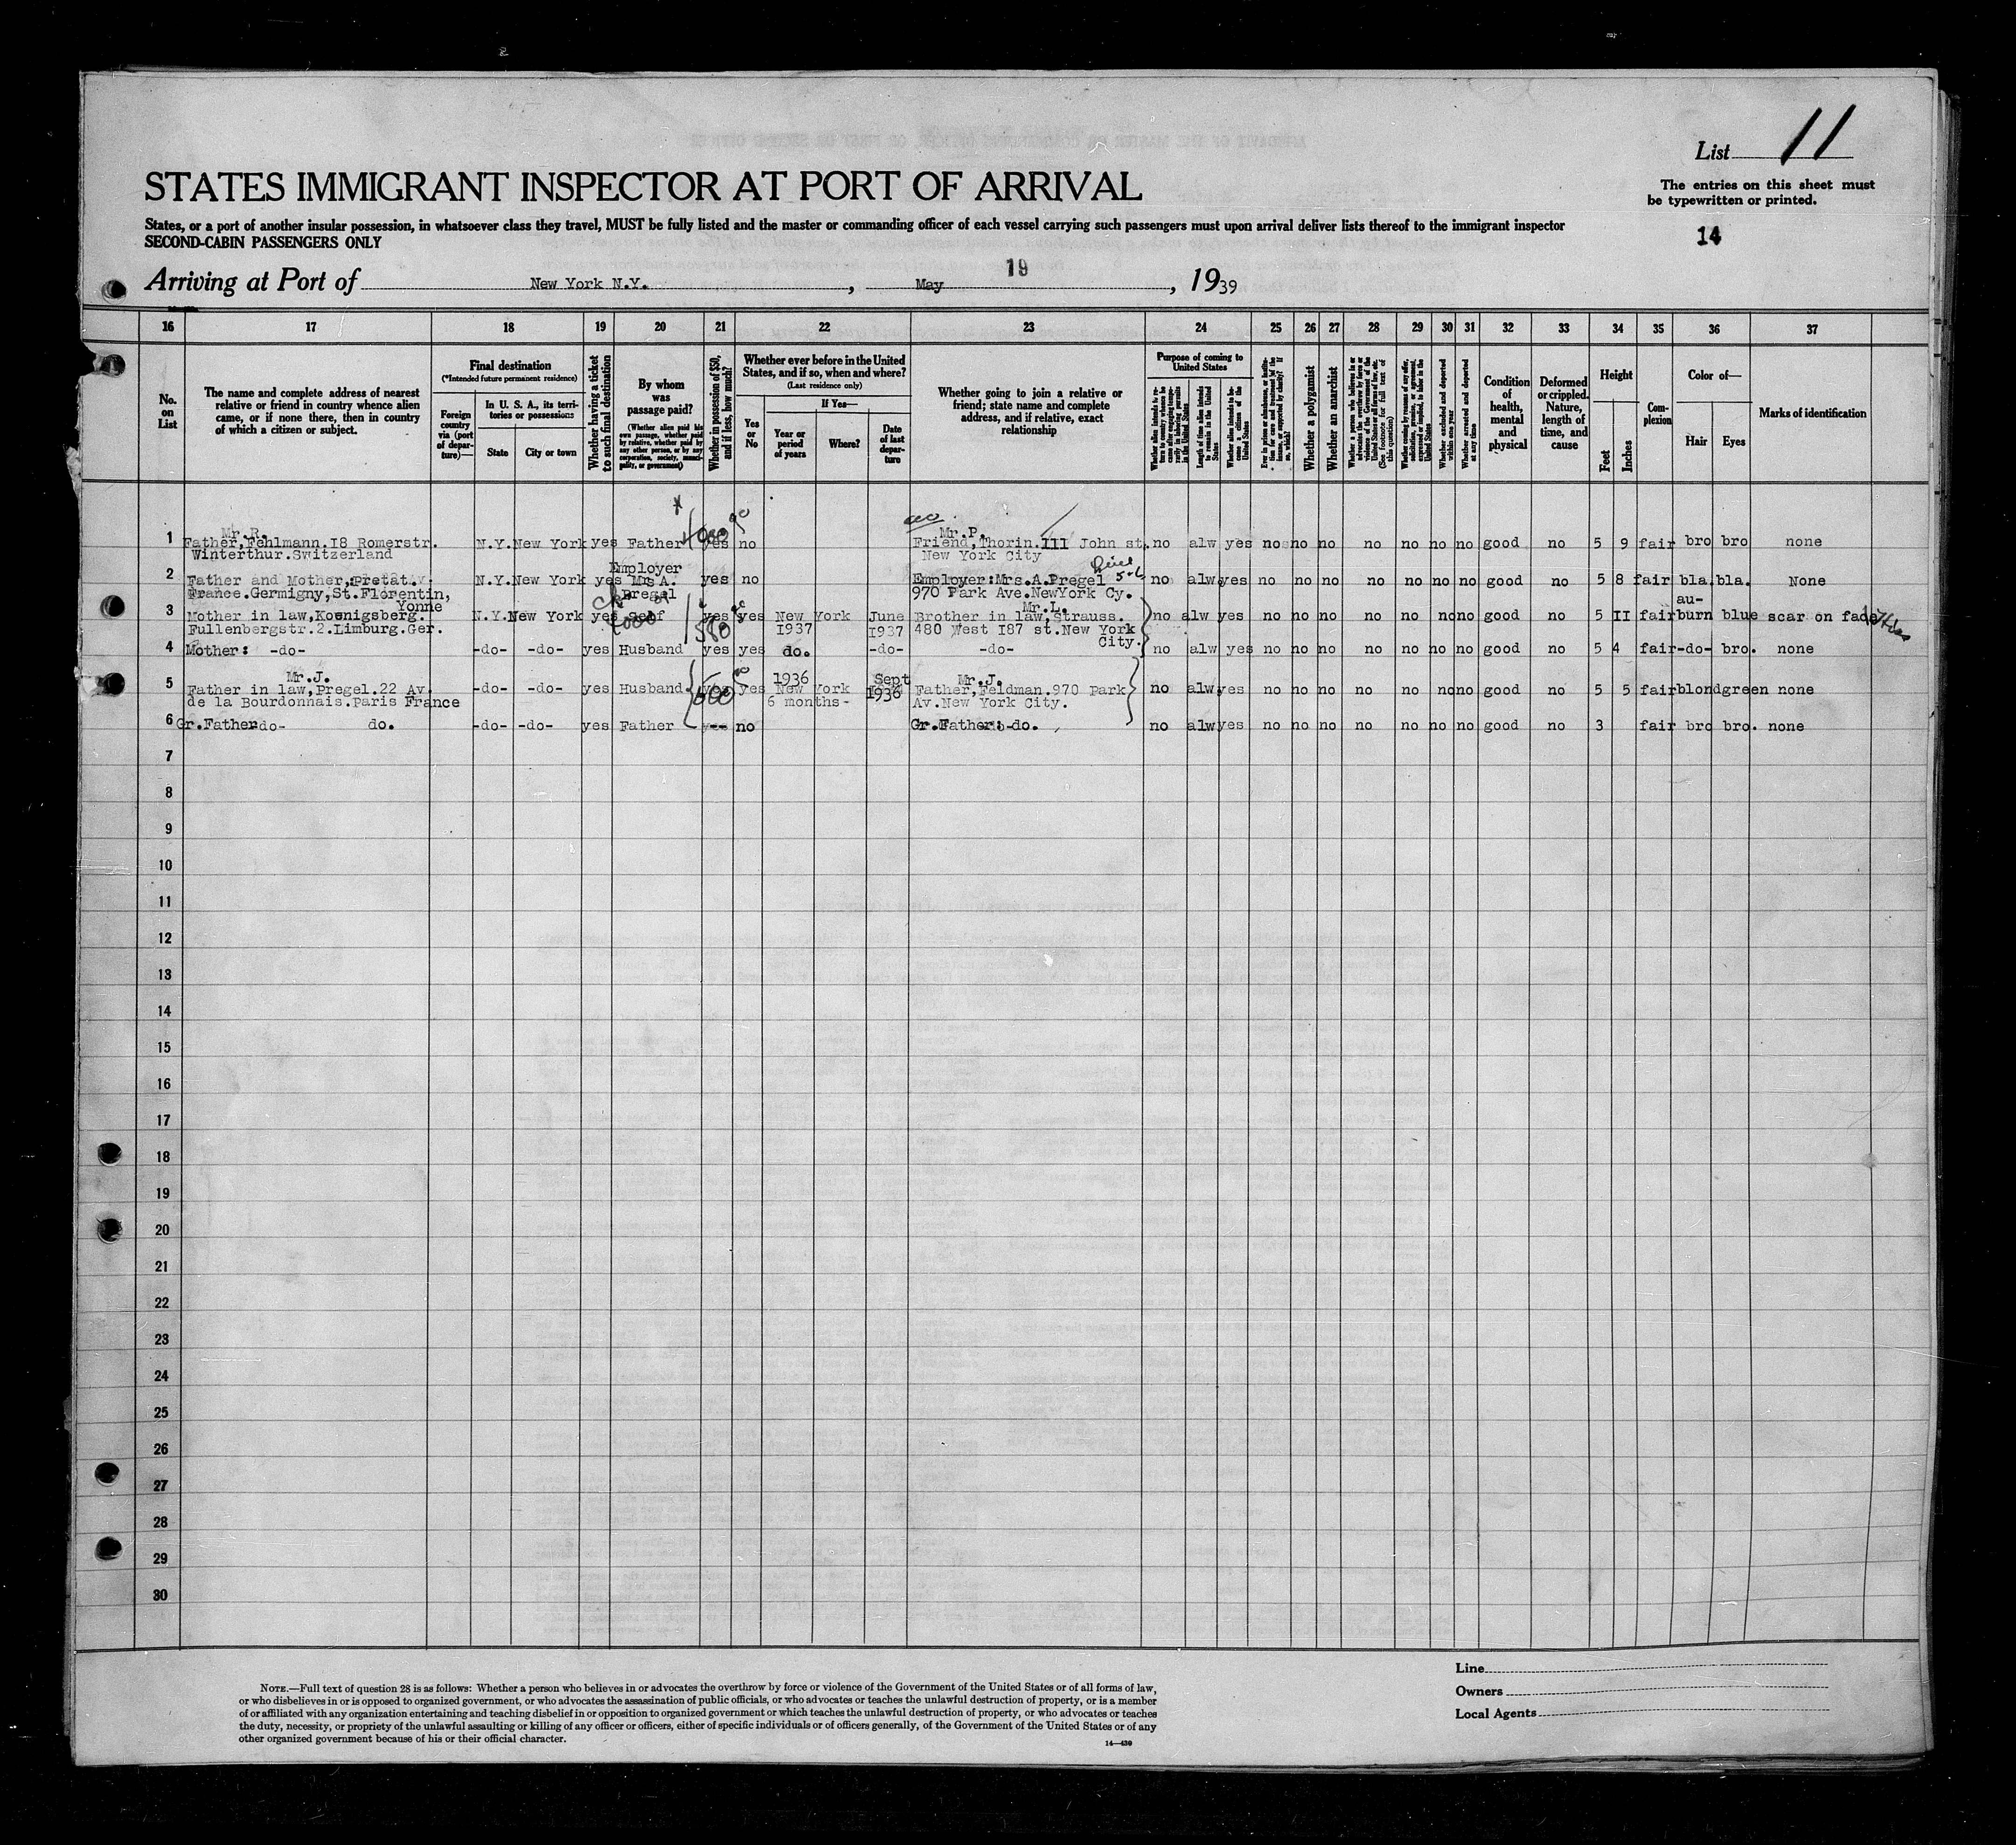 List 11
STATES IMMIGRANT INSPECTOR AT PORT OF ARRIVAL
The entries on this sheet must
be typewritten or printed.
States, or a port of another insular possession, in whatsoever class they travel, MUST be fully listed and the master or commanding officer of each vessel carrying such passengers must upon arrival deliver lists thereof to the immigrant inspector
SECOND-CABIN PASSENGERS ONLY
14
Arriving at Port of New York N.Y., May 19, 1939
16 17 18 19 20 21 22 23 24 25 26 27 28 29 30 31 32 33 34 35 36 37
No.
on
List
The name and complete address of nearest
relative or friend in country whence alien
came, or if none there, then in country
of which a citizen or subject.
Final destination
(*Intended future permanent residence)
Foreign
country
via (port
of depar-
ture)—
In U. S. A., its terri-
tories or possessions
State
City or town
Whether having a ticket
to such final destination
By whom
was
passage paid?
(Whether alien paid his
own passage, whether paid
by relative, whether paid by
any other person, or by any
corporation, society, munici-
pality, or government)
Whether in possession of $50,
and if less, how much?
Whether ever before in the United
States, and if so, when and where?
(Last residence only)
Yes
or
No
If Yes—
Year or
period
of years
Where?
Date
of last
depar-
ture
Whether going to join a relative or
friend; state name and complete
address, and if relative, exact
relationship
Purpose of coming to
United States
Whether alien intends to re-
turn to country whence he
came after engaging tempo-
rarily in laboring pursuits
in the United States
Length of time alien intends
to remain in the United
States
Whether alien intends to be-
come a citizen of the
United States
Ever in prison or almshouse, or institu-
tion for care and treatment of the
insane, or supported by charity? If
so, which?
Whether a polygamist
Whether an anarchist
Whether a person who believes in or
advocates the overthrow by force or
violence of the Government of the
United States or all forms of law, etc.
(See footnote for full text of
this question)
Whether coming by reason of any offer,
solicitation, promise, or agreement,
expressed or implied, to labor in the
United States
Whether excluded and deported
within one year
Whether arrested and deported
at any time
Condition
of
health,
mental
and
physical
Deformed
or crippled.
Nature,
length of
time, and
cause
Height
Feet
Inches
Com-
plexion
Color of—
Hair
Eyes
Marks of identification
Mr.R. Mr.P.
1 Father,Fehlmann.I8 Romerstr. N.Y. New York yes Father yes no Friend,Thorin.III John st. no alw yes no no no no no no no good no 5 9 fair bro bro none
Winterthur.Switzerland New York City
Employer
2 Father and Mother,:Pretat. N.Y. New York yes Mrs A. yes no Employer:Mrs.A.Pregel no alw yes no no no no no no no good no 5 8 fair bla. bla. None
France.Germigny,St.Florentin, Pregel 970 Park Ave.NewYork Cy.
Yonne Mr.L. au-
3 Mother in law,Koenigsberg. N.Y. New York yes Self yes yes New York June Brother in law,Strauss. no alw yes no no no no no no no good no 5 II fair burn blue scar on face
Fullenbergstr.2.Limburg.Ger. 2000 580 I937 I937 480 West I87 st.New York
City.
4 Mother: -do- -do- -do- yes Husband yes yes do. -do- -do- no alw yes no no no no no no no good no 5 4 fair -do- bro. none
Mr.J. 1936 Sept Mr.J.
5 Father in law,Pregel.22 Av. -do- -do- yes Husband yes yes New York 1936 Father,Feldman.970 Park no alw yes no no no no no no no good no 5 5 fair blond green none
de la Bourdonnais.Paris France 500 6 months- Av.New York City.
6 Gr.Father -do- do. -do- -do- yes Father --- no Gr.Father:-do. no alw yes no no no no no no no good no 3 fair bro bro. none
7
8
9
10
11
12
13
14
15
16
17
18
19
20
21
22
23
24
25
26
27
28
29
30
NOTE.—Full text of question 28 is as follows: Whether a person who believes in or advocates the overthrow by force or violence of the Government of the United States or of all forms of law,
or who disbelieves in or is opposed to organized government, or who advocates the assassination of public officials, or who advocates or teaches the unlawful destruction of property, or is a member
of or affiliated with any organization entertaining and teaching disbelief in or opposition to organized government or which teaches the unlawful destruction of property, or who advocates or teaches
the duty, necessity, or propriety of the unlawful assaulting or killing of any officer or officers, either of specific individuals or of officers generally, of the Government of the United States or of any
other organized government because of his or their official character.
14—430
Line
Owners
Local Agents